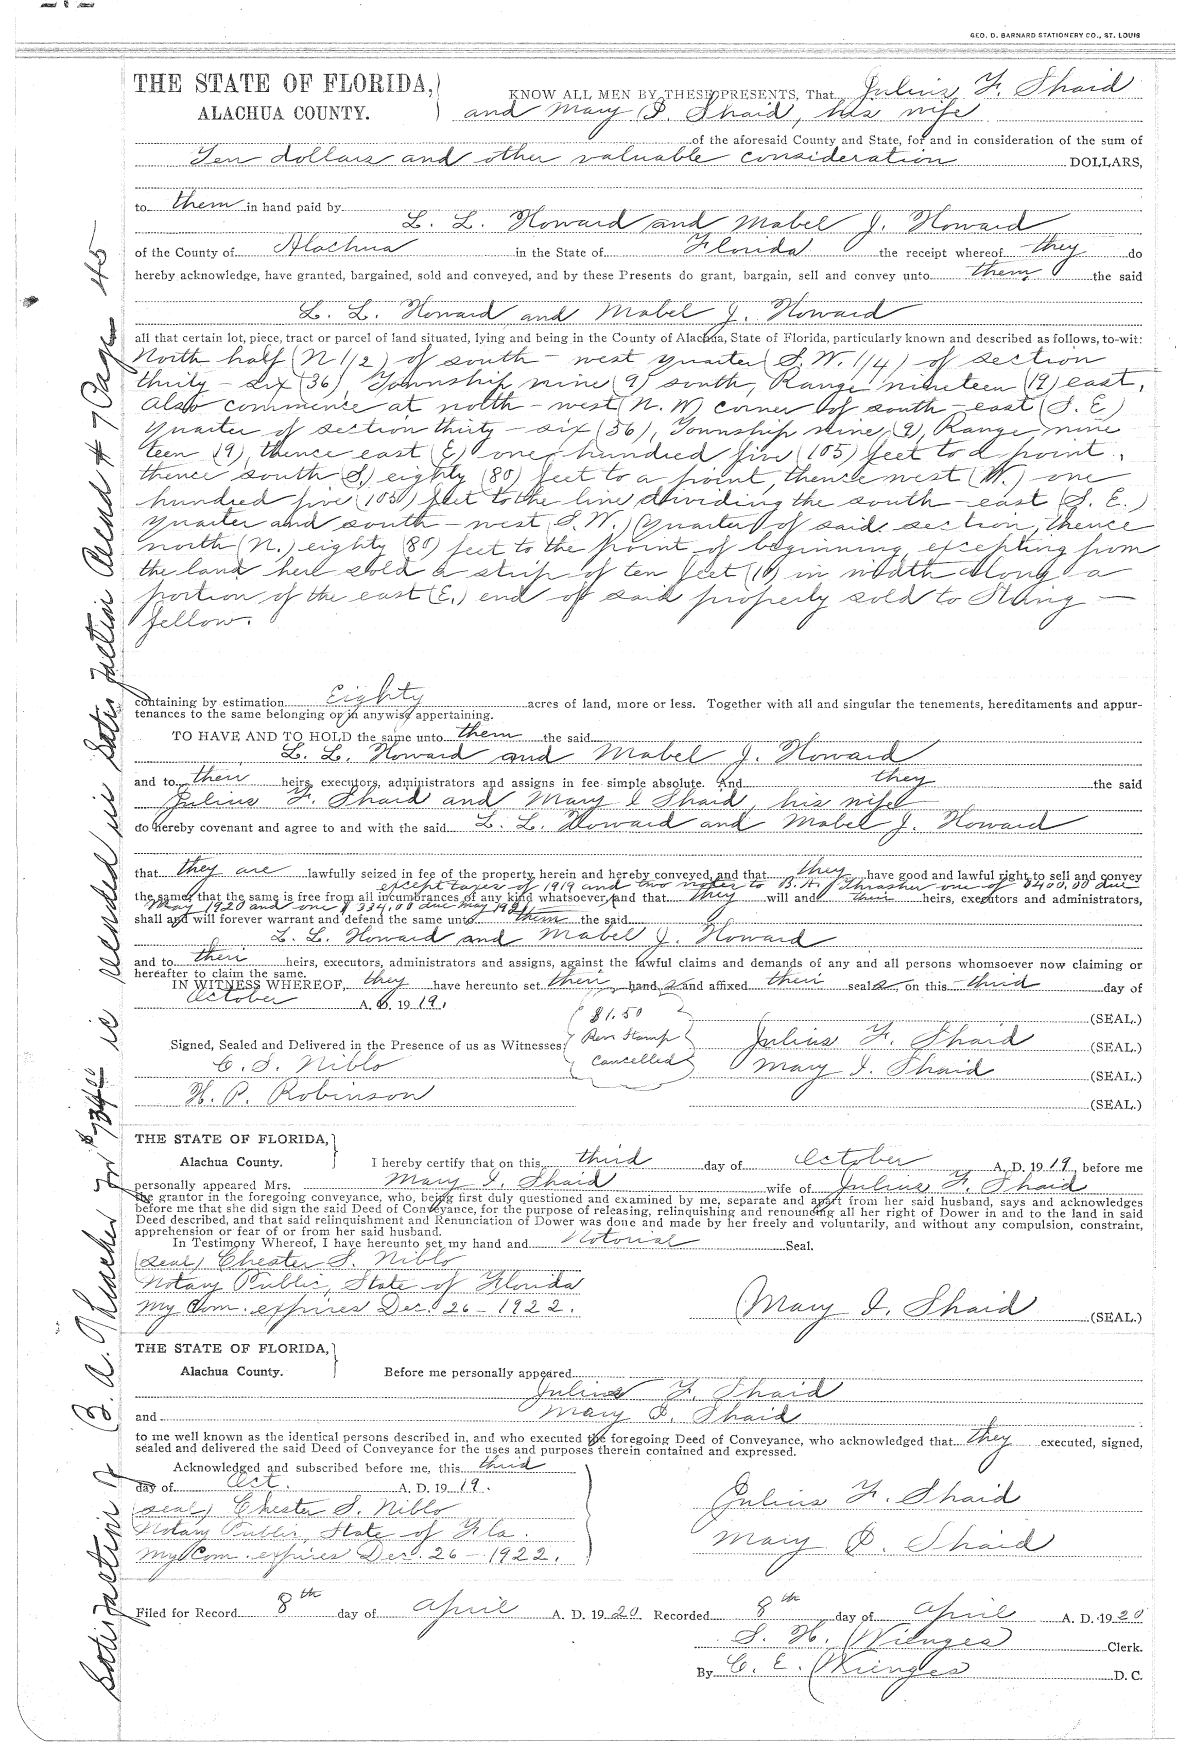 GEO. D. BARNARD STATIONERY CO., ST. LOUIS
THE STATE OF FLORIDA,
ALACHUA COUNTY.
KNOW ALL MEN BY THESE PRESENTS, That Julius F. Shaid
and Mary I. Shaid, his wife
of the aforesaid County and State, for and in consideration of the sum of
Ten dollars and other valuable consideration DOLLARS,
to them in hand paid by
L. L. Howard and Mabel J. Howard
of the County of Alachua in the State of Florida the receipt whereof they do
hereby acknowledge, have granted, bargained, sold and conveyed, and by these Presents do grant, bargain, sell and convey unto them the said
L. L. Howard and Mabel J. Howard
all that certain lot, piece, tract or parcel of land situated, lying and being in the County of Alachua, State of Florida, particularly known and described as follows, to-wit:
North half (N 1/2) of south-west quarter (S.W. 1/4) of section
thirty-six (36), Township nine (9) south, Range nineteen (19) east,
also commence at north-west (N.W) corner of south-east (S.E)
quarter of section thirty-six (36), Township nine (9), Range nine
teen (19), thence east (E) one hundred five (105) feet to a point,
thence south (S) eighty (80) feet to a point, thence west (W.) one
hundred five (105) feet to the line dividing the south-east (S.E.)
quarter and south-west (S.W.) quarter of said section, thence
north (N.) eighty (80) feet to the point of beginning, excepting from
the land here sold a strip of ten feet (10) in width along a
portion of the east (E.) end of said property sold to String-
fellow.
containing by estimation Eighty acres of land, more or less. Together with all and singular the tenements, hereditaments and appur-
tenances to the same belonging or in anywise appertaining.
TO HAVE AND TO HOLD the same unto them the said
L. L. Howard and Mabel J. Howard
and to their heirs, executors, administrators and assigns in fee simple absolute. And they the said
Julius F. Shaid and Mary I Shaid, his wife
do hereby covenant and agree to and with the said L. L. Howard and Mabel J. Howard
that they are lawfully seized in fee of the property herein and hereby conveyed, and that they have good and lawful right to sell and convey
except taxes of 1919 and two notes to B. A. Thrasher one of $400.00 due
the same; that the same is free from all incumbrances of any kind whatsoever, and that they will and their heirs, executors and administrators,
May 1920 and one $334.00 due May 1921
shall and will forever warrant and defend the same unto them the said
L. L. Howard and Mabel J. Howard
and to their heirs, executors, administrators and assigns, against the lawful claims and demands of any and all persons whomsoever now claiming or
hereafter to claim the same.
IN WITNESS WHEREOF, they have hereunto set their hands and affixed their seals, on this third day of
October A. D. 1919.
$1.50
Rev. Stamp
Cancelled
(SEAL.)
Signed, Sealed and Delivered in the Presence of us as Witnesses: Julius F. Shaid (SEAL.)
C. S. Niblo Mary I. Shaid (SEAL.)
H. P. Robinson (SEAL.)
THE STATE OF FLORIDA,
Alachua County.
I hereby certify that on this third day of October A. D. 1919, before me
personally appeared Mrs. Mary I. Shaid wife of Julius F. Shaid
the grantor in the foregoing conveyance, who, being first duly questioned and examined by me, separate and apart from her said husband, says and acknowledges
before me that she did sign the said Deed of Conveyance, for the purpose of releasing, relinquishing and renouncing all her right of Dower in and to the land in said
Deed described, and that said relinquishment and Renunciation of Dower was done and made by her freely and voluntarily, and without any compulsion, constraint,
apprehension or fear of or from her said husband.
In Testimony Whereof, I have hereunto set my hand and Notorial Seal.
(seal) Chester S. Niblo
Notary Public, State of Florida
My Com. expires Dec. 26-1922.
Mary I. Shaid (SEAL.)
THE STATE OF FLORIDA,
Alachua County.
Before me personally appeared
Julius F. Shaid
and Mary I. Shaid
to me well known as the identical persons described in, and who executed the foregoing Deed of Conveyance, who acknowledged that they executed, signed,
sealed and delivered the said Deed of Conveyance for the uses and purposes therein contained and expressed.
Acknowledged and subscribed before me, this third
day of Oct. A. D. 1919.
(seal) Chester S. Niblo
Notary Public, State of Fla.
My Com. expires Dec. 26-1922.
Julius F. Shaid
Mary I. Shaid
Filed for Record 8th day of April A. D. 1920 Recorded 8th day of April A. D. 1920
S. H. Wienges Clerk.
By C. E. Wienges D. C.
Satisfaction of B. A. Thrasher for $734.00 is recorded in Satisfaction Record # 7 Page 45